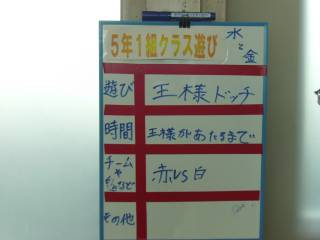 5年1組クラス遊び
水と金
遊び
王様ドッチ
時間
王様があたるまで
チーム
や
など
赤VS白
その他